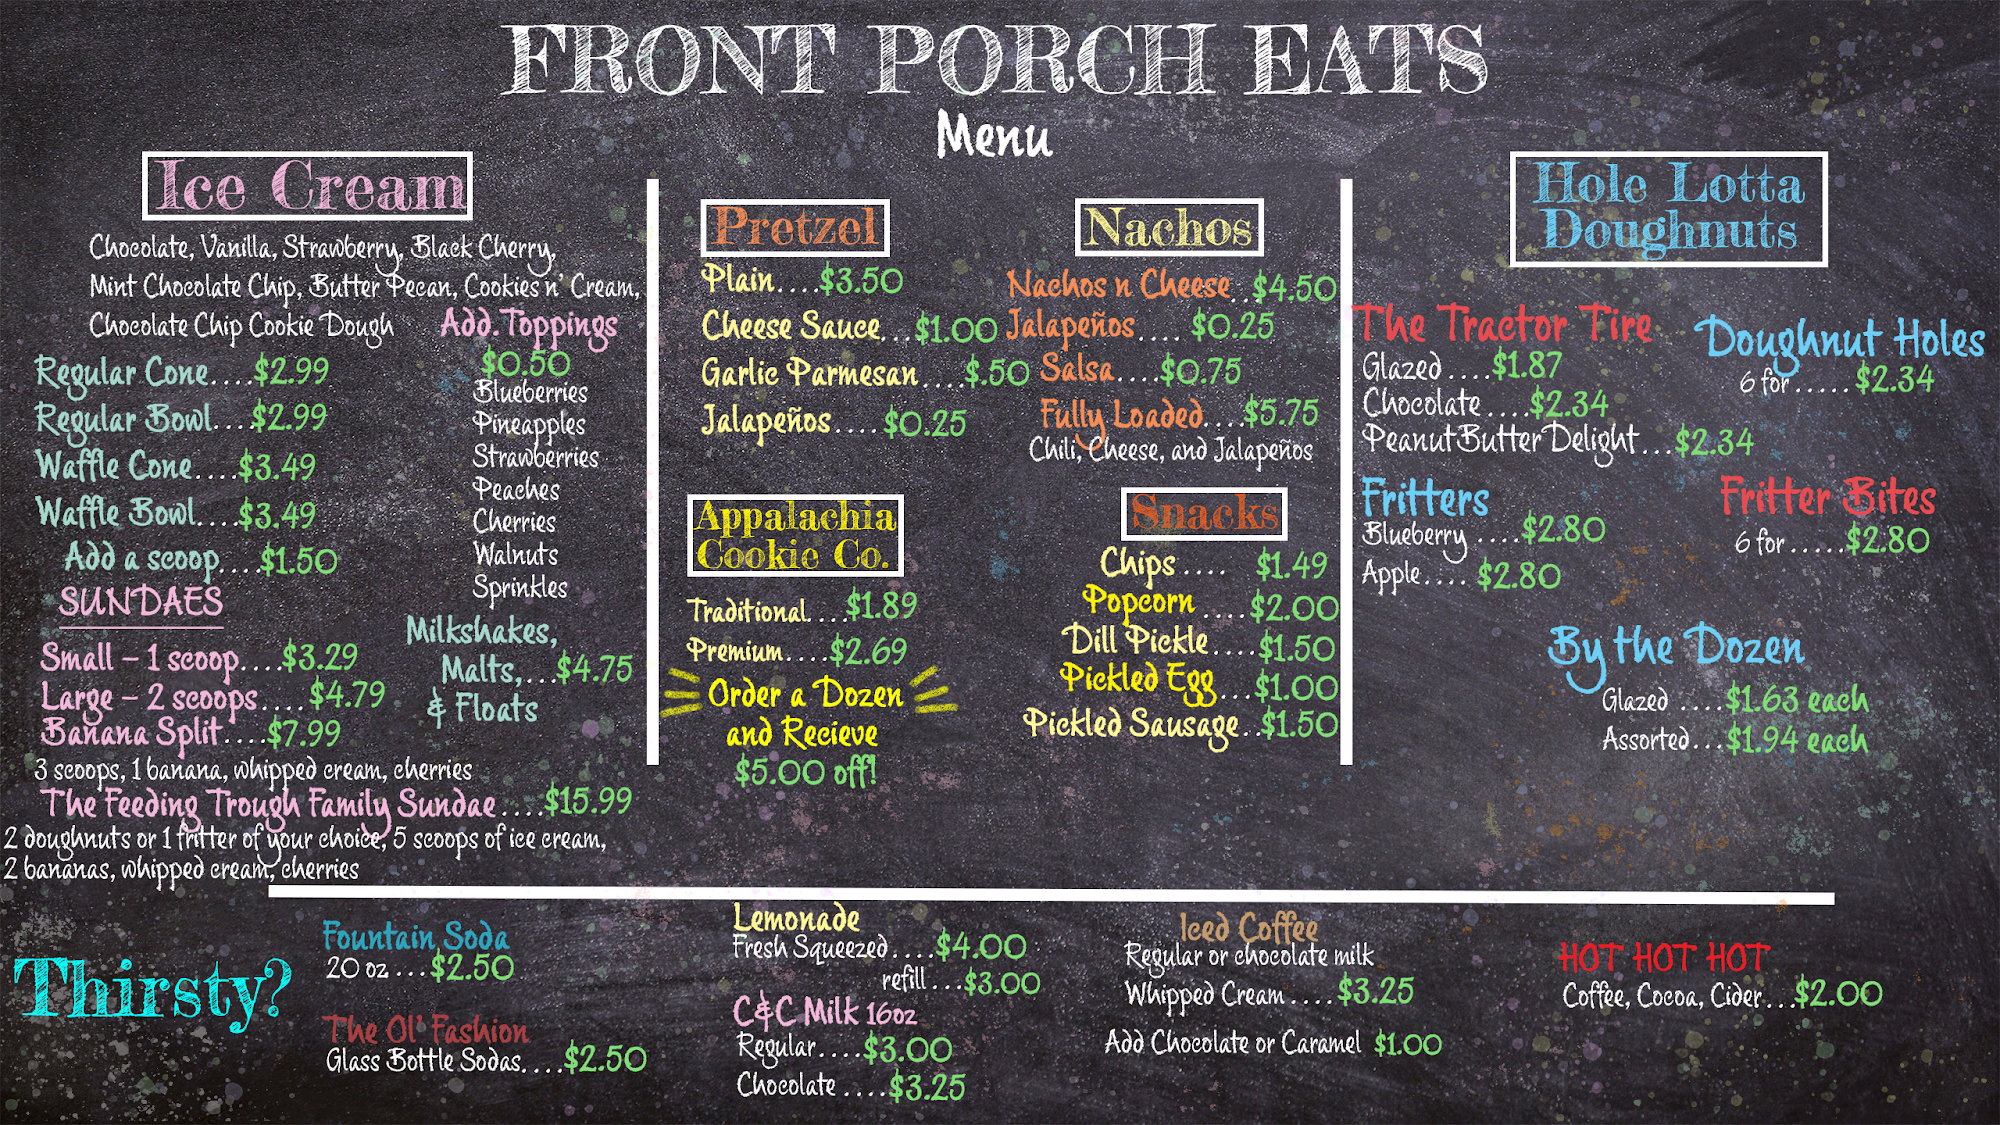 FRONT PORCH EATS
Menu
Ice Cream
Chocolate, Vanilla, Strawberry, Black Cherry,
Mint Chocolate Chip, Butter Pecan, Cookies n' Cream,
Chocolate Chip Cookie Dough
Regular Cone....$2.99
Regular Bowl....$2.99
Waffle Cone....$3.49
Waffle Bowl....$3.49
Add a scoop....$1.50
Add.Toppings
$0.50
Blueberries
Pineapples
Strawberries
Peaches
Cherries
Walnuts
Sprinkles
SUNDAES
Small – 1 scoop....$3.29
Large – 2 scoops....$4.79
Banana Split....$7.99
3 scoops, 1 banana, whipped cream, cherries
Milkshakes,
Malts,...$4.75
& Floats
The Feeding Trough Family Sundae....$15.99
2 doughnuts or 1 fritter of your choice, 5 scoops of ice cream,
2 bananas, whipped cream, cherries
Pretzel
Plain....$3.50
Cheese Sauce...$1.00
Garlic Parmesan....$.50
Jalapeños....$0.25
Nachos
Nachos n Cheese..$4.50
Jalapeños....$0.25
Salsa....$0.75
Fully Loaded....$5.75
Chili, Cheese, and Jalapeños
Appalachia
Cookie Co.
Traditional....$1.89
Premium....$2.69
Order a Dozen
and Recieve
$5.00 off!
Snacks
Chips.... $1.49
Popcorn....$2.00
Dill Pickle....$1.50
Pickled Egg...$1.00
Pickled Sausage..$1.50
Hole Lotta
Doughnuts
The Tractor Tire
Glazed....$1.87
Chocolate....$2.34
Peanut Butter Delight...$2.34
Doughnut Holes
6 for.....$2.34
Fritters
Blueberry....$2.80
Apple....$2.80
Fritter Bites
6 for.....$2.80
By the Dozen
Glazed....$1.63 each
Assorted...$1.94 each
Thirsty?
Fountain Soda
20 oz...$2.50
The Ol' Fashion
Glass Bottle Sodas....$2.50
Lemonade
Fresh Squeezed....$4.00
refill...$3.00
C&C Milk 16oz
Regular....$3.00
Chocolate....$3.25
Iced Coffee
Regular or chocolate milk
Whipped Cream....$3.25
Add Chocolate or Caramel $1.00
HOT HOT HOT
Coffee, Cocoa, Cider...$2.00